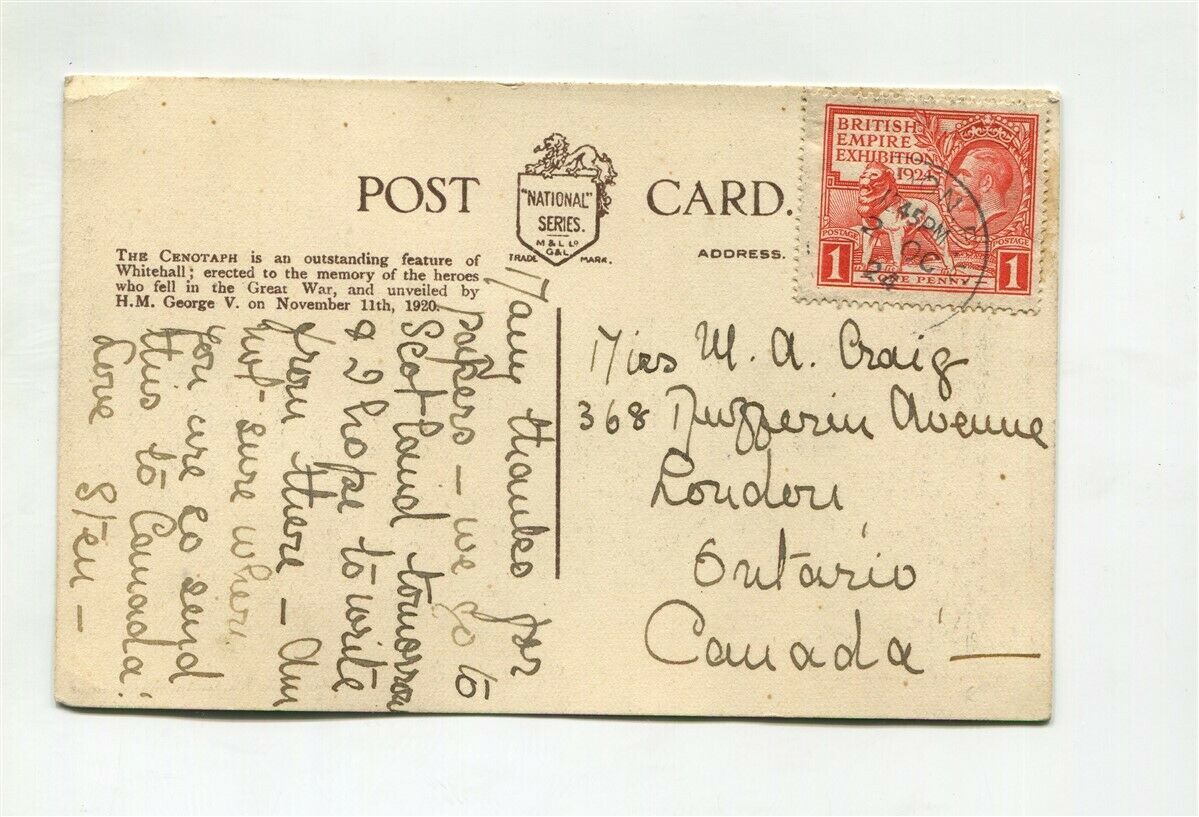 POST CARD.
"NATIONAL"
SERIES.
M & L Lᴅ
G & L.
TRADE MARK.
ADDRESS.
THE CENOTAPH is an outstanding feature of
Whitehall; erected to the memory of the heroes
who fell in the Great War, and unveiled by
H.M. George V. on November 11th, 1920.
BRITISH
EMPIRE
EXHIBITION
1924
POSTAGE POSTAGE
1 ONE PENNY 1
45PM
2 OC
24
Many thanks for
papers – we go to
Scotland tomorrow
& I hope to write
from there – Am
not sure when
you are so send
this to Canada!
Love
Miss M. A. Craig
368 Dufferin Avenue
London,
Ontario
Canada —